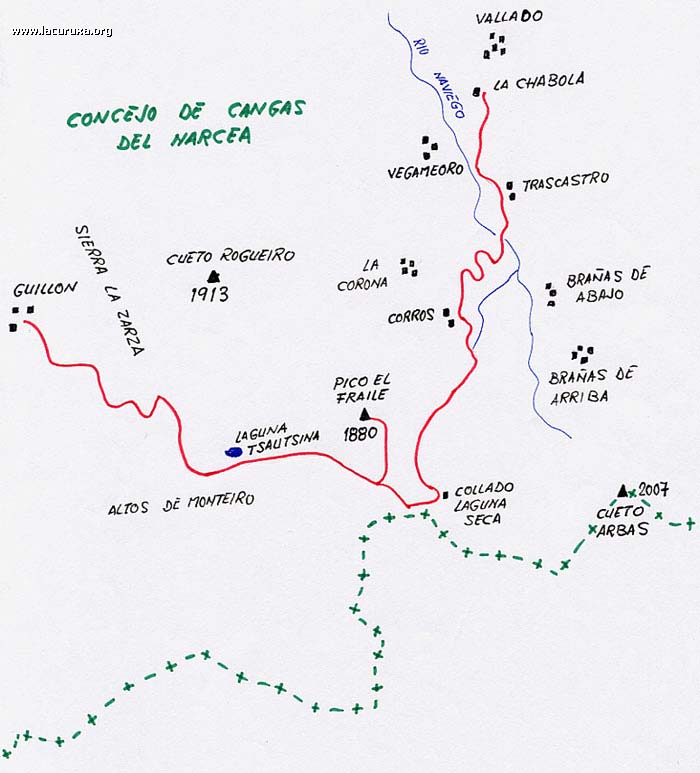 www.lacuruxa.org
VALLADO
RIO
NAVIEGO
LA CHABOLA
CONCEJO DE CANGAS
DEL NARCEA
VEGAMEORO
TRASCASTRO
SIERRA LA ZARZA
CUETO ROGUEIRO
1913
LA
CORONA
BRAÑAS DE
ABAJO
GUILLON
CORROS
BRAÑAS DE
ARRIBA
PICO EL
FRAILE
1880
LAGUNA
TSAUTSINA
ALTOS DE MONTEIRO
COLLADO
LAGUNA
SECA
2007
CUETO
ARBAS